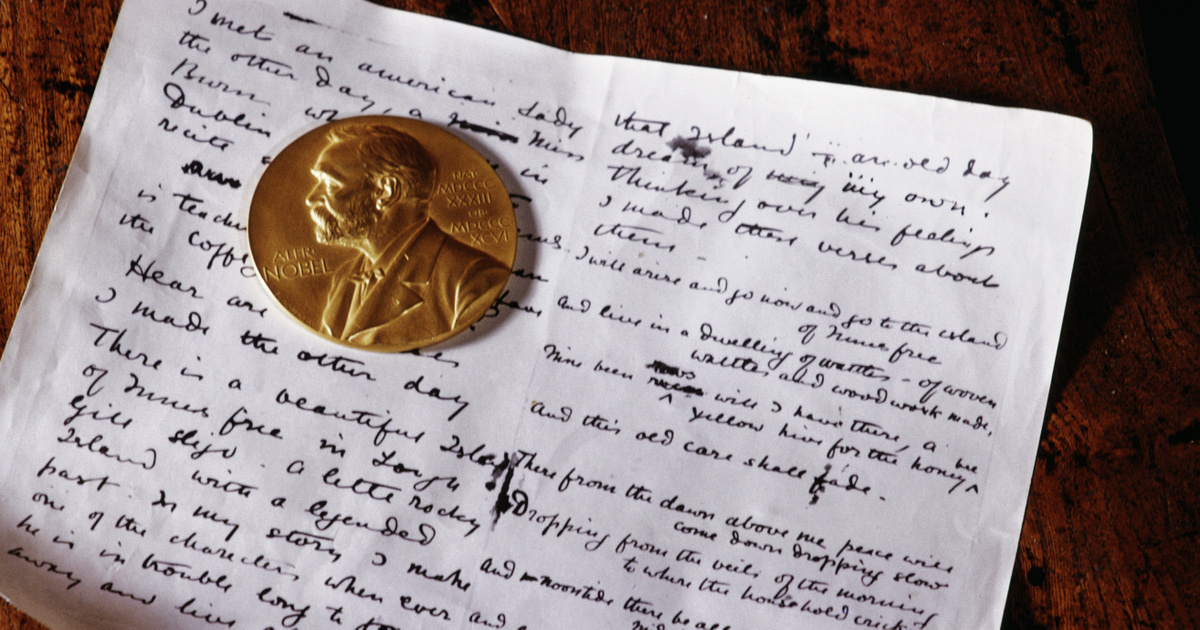 I met an american Lady
the other day, a Miss
Burn
Dublin wh in
recite
is teach
the coffe
Hear are
I made the other day
There is a beautiful Island
of Innis free in Lough
Gill sligo. A little rocky
Island with a legended
past. In my story I make
one of the charecters when ever
he is in trouble long to
away and live
ALFR·
NOBEL
NAT·
MDCCC
XXXIII
OB·
MDCCC
XCVI
that Island an old day
dream of my my own.
Thinking over his feelings
I made these verses about
them.
I will arise and go now and go to the island
of Innis free
and live in a dwelling of wattles - of woven
wattles and wood work made,
Nine been rows will I have there, a
yellow hive for the honey bee
And this old care shall fade.
There from the dawn above me peace will
come down dropping slow
Dropping from the veils of the morning
to where the household crick
and noontide there be all